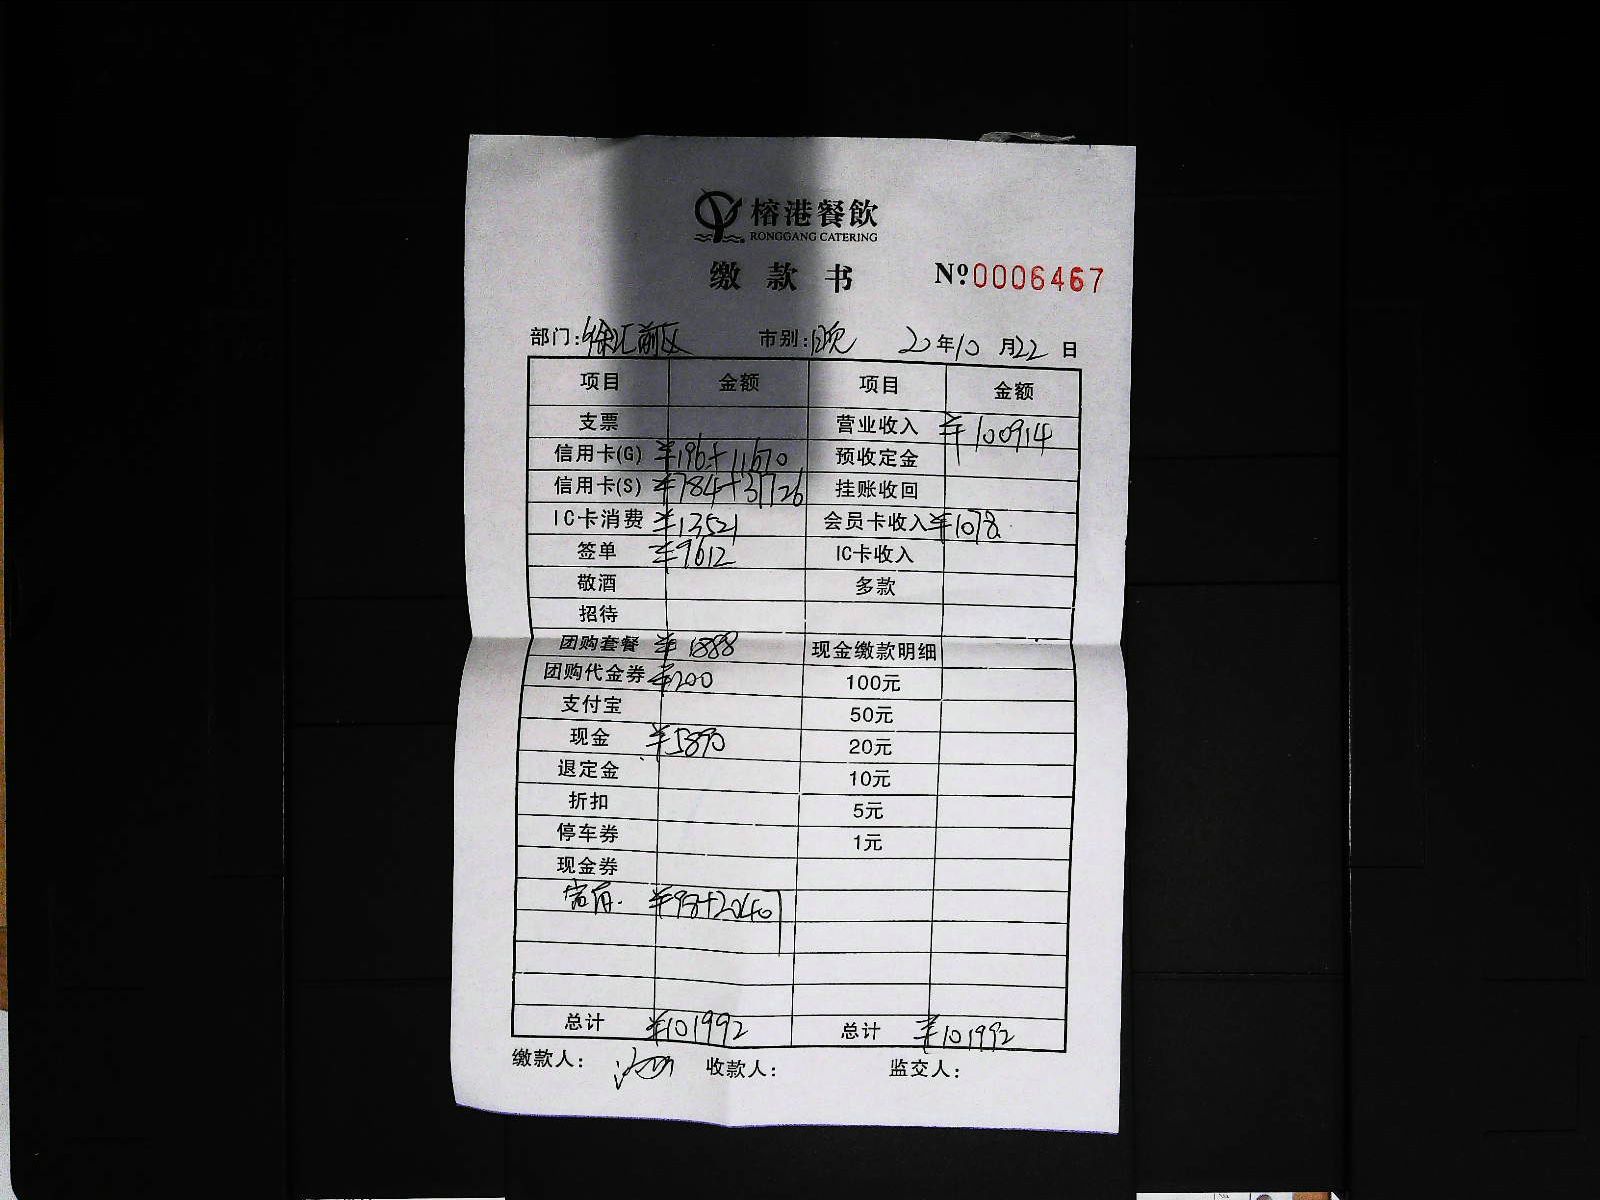 榕港餐飲
RONGGANG CATERING
缴款书 Nº0006467
部门:徐汇前区 市别:晚 20年10月22日
项目 金额 项目 金额
支票 营业收入 ¥100914
信用卡(G) ¥196+11670 预收定金
信用卡(S) ¥784+37726 挂账收回
IC卡消费 ¥13521 会员卡收入 ¥1078
签单 ¥9612 IC卡收入
敬酒 多款
招待
团购套餐 ¥1888 现金缴款明细
团购代金券 ¥200 100元
支付宝 50元
现金 ¥5890 20元
退定金 10元
折扣 5元
停车券 1元
现金券
¥98+20407
总计 ¥101992 总计 ¥101992
缴款人: 收款人: 监交人: